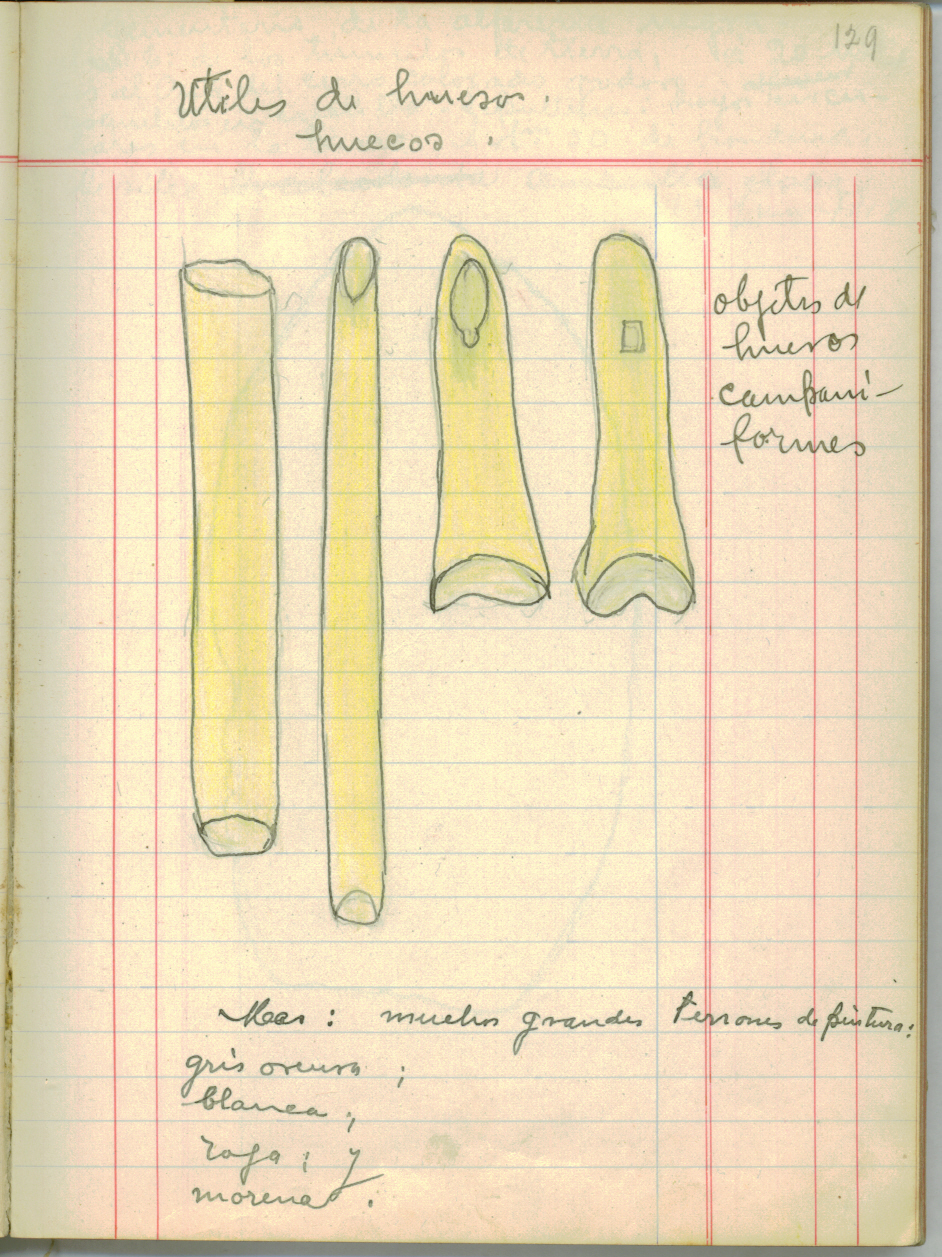 129
Utiles de huesos.
huecos.
objetos de
huesos
campani-
formes
Mas: muchos grandes terrones de pintura:
gris oscura;
blanca;
roja; y
morena.